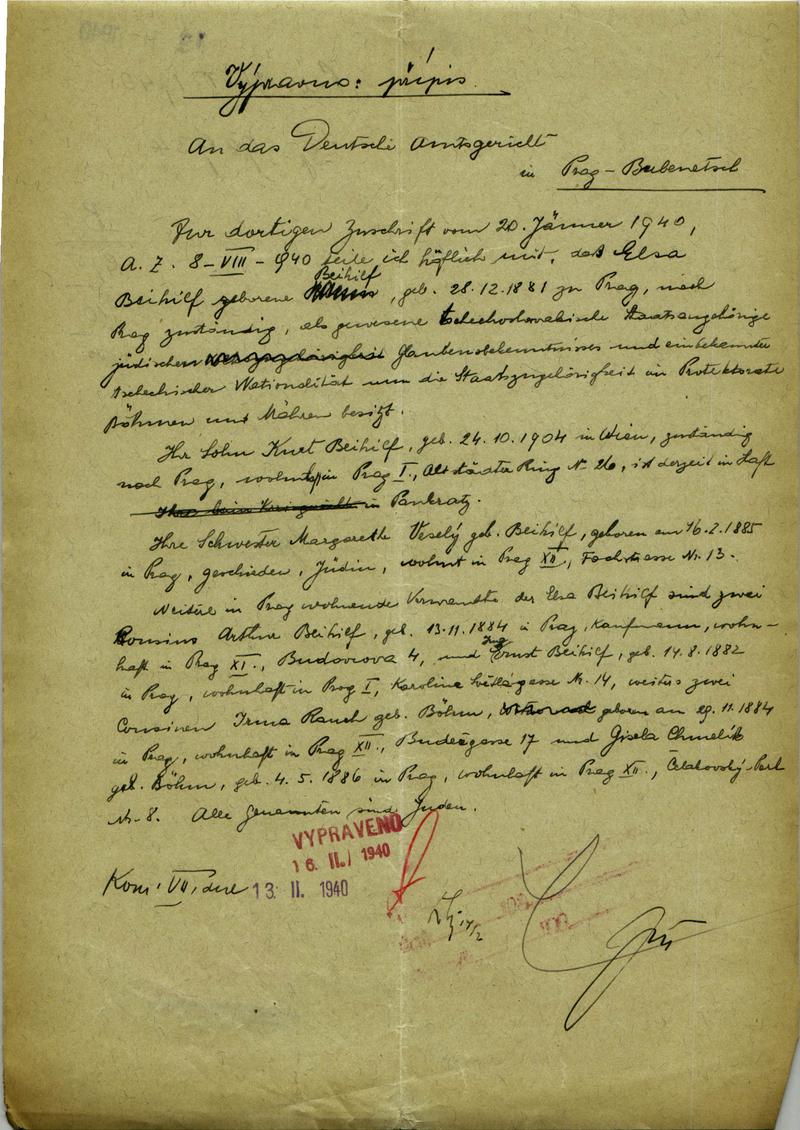 Výpravna: přípis
An das Deutsche Amtsgericht
in Prag-Bubenetsch
Zur dortigen Zuschrift vom 20. Jänner 1940,
A. Z. 8-VIII-940 teile ich höflich mit, dass Elsa
Beihilf
Beihilf geborene, geb. 28.12.1881 zu Prag, nach
Prag zuständig, als gewesene tschechoslovakische Staatsangehörige
jüdischen Glaubensbekenntnisses und einbekannter
tschechischer Nationalität nun die Staatszugehörigkeit im Protektorate
Böhmen und Mähren besitzt.
Ihr Sohn Kurt Beihilf, geb. 24.10.1904 in Wien, zuständig
nach Prag, wohnhaft in Prag I., Altstädter Ring Nr. 26, ist derzeit in Haft
in Pankratz.
Ihre Schwester Margarethe Veselý geb. Beihilf, geboren am 16.2.1885
in Prag, geschieden, Jüdin, wohnt in Prag XII, Fochstrasse Nr. 13.
Weitere in Prag wohnende Verwandte der Elsa Beihilf sind zwei
Cousins Arthur Beihilf, geb. 13.11.1884 in Prag, Kaufmann, wohn-
haft in Prag XI., Budovcova 4, und Ing. Ernst Beihilf, geb. 14.8.1882
in Prag, wohnhaft in Prag I, Karoline Světlágasse Nr. 14, weiters zwei
Cousinen Irma Rauch geb. Böhm, geboren am 29.11.1884
in Prag, wohnhaft in Prag XII., Budečgasse 17 und Gisela Chmelík
geb. Böhm, geb. 4.5.1886 in Prag, wohnhaft in Prag XII., Čelakovský-Park
Nr. 8. Alle Genannten sind Juden.
VYPRAVENO
16. II. 1940
Kom. VII, dne 13 II. 1940
14/2